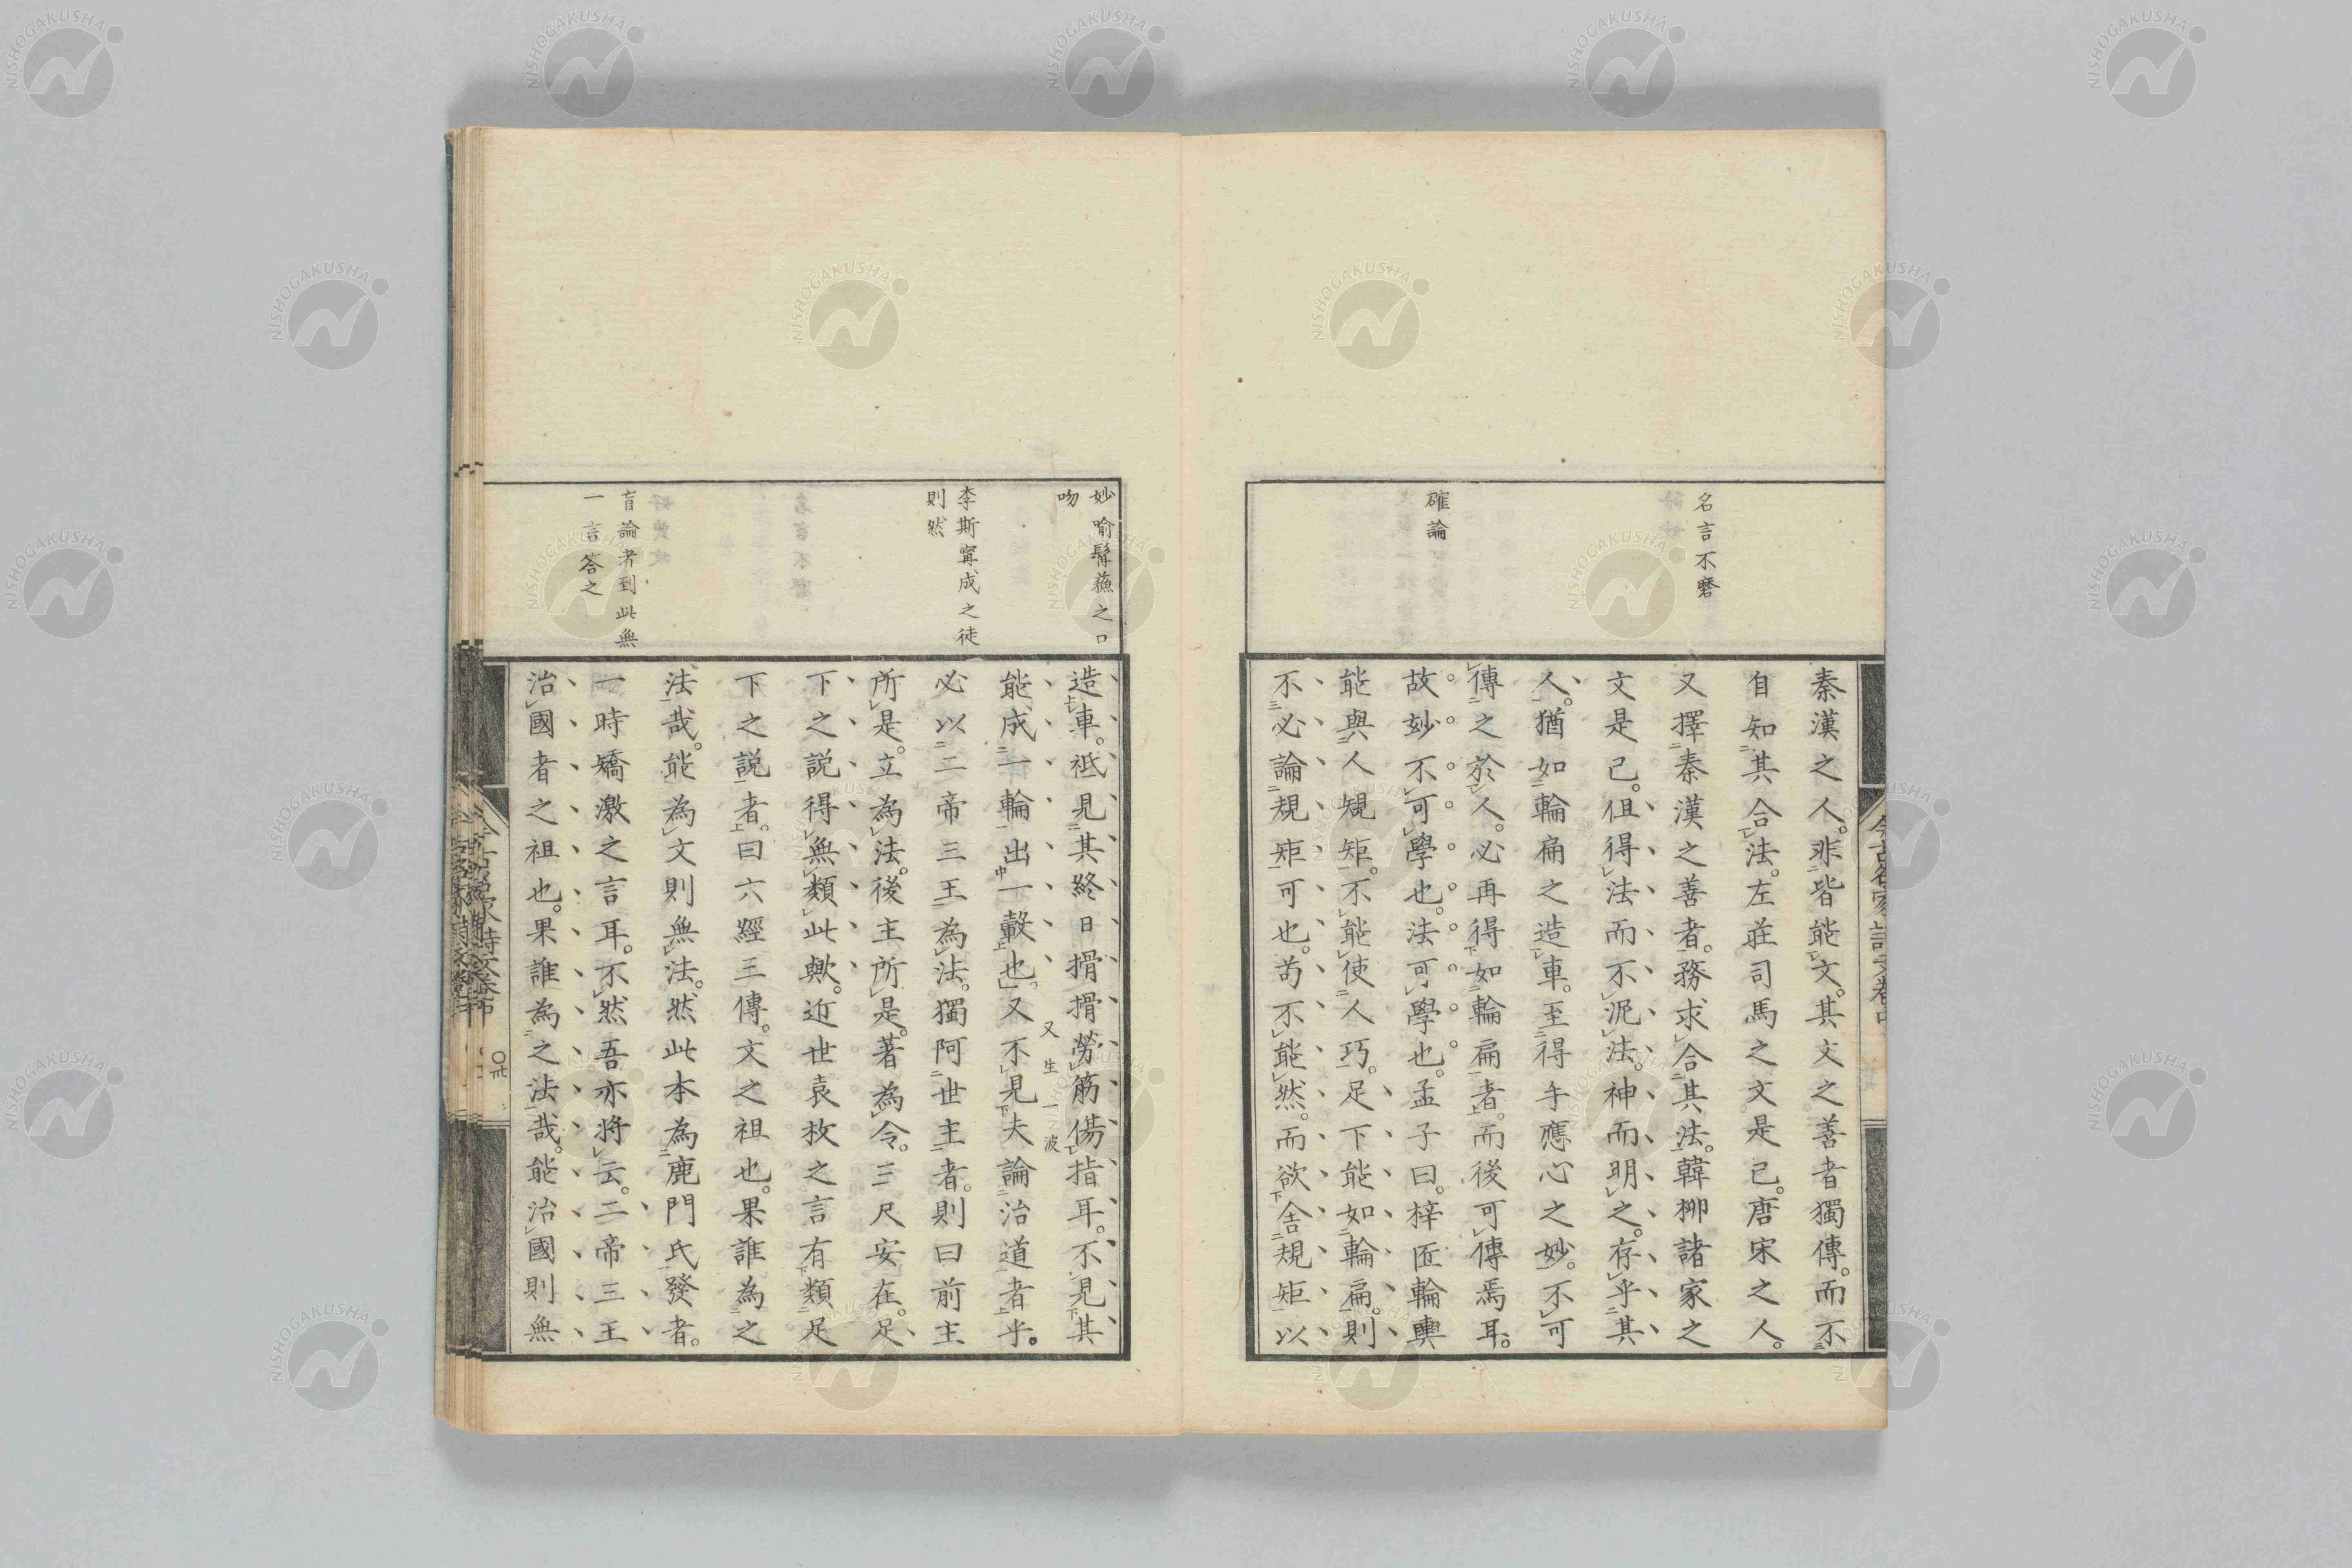 名言不磨
確論
秦漢之人。非皆能文。其文之善者獨傳。而不
自知其合法。左莊司馬之文是已。唐宋之人。
又擇秦漢之善者。務求合其法。韓柳諸家之
文是已。但得法而不泥法。神而明之。存乎其
人。猶如輪扁之造車。至得手應心之妙。不可
傳之於人。必再得如輪扁者。而後可傳焉耳。
故妙不可學也。法可學也。孟子曰。梓匠輪輿
能與人規矩。不能使人巧。足下能如輪扁。則
不必論規矩可也。苟不能然。而欲舍規矩以
妙喻髯蘓之口
吻
李斯寗成之徒
則然
盲論者到此無
一言答之
造車。祗見其終日搰搰勞筋傷指耳。不見其
能成一輪出一轂也。又不見夫論治道者乎。
又生一波
必以二帝三王為法。獨阿世主者。則曰前主
所是。立為法。後主所是。著為令。三尺安在。足
下之説得無類此歟。近世袁枚之言有類足
下之説者。曰六經三傳。文之祖也。果誰為之
法哉。能為文則無法。然此本為鹿門氏發者。
一時矯激之言耳。不然吾亦將云。二帝三王
治國者之祖也。果誰為之法哉。能治國則無
NISHOGAKUSHA